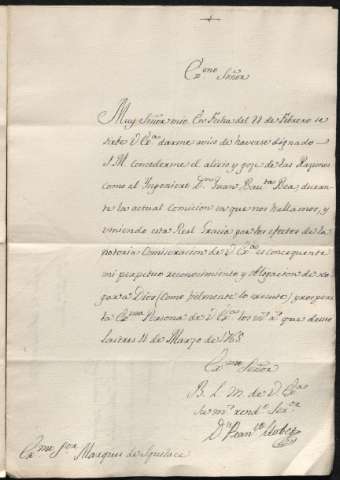 Exmo Señor
Muy Señor mio. En Fecha del 21 de Febrero se
sirbe V. Exa darme aviso de haverse dignado
S.M. concederme el alivio y goze de las Raziones
como al Ingeniero Dn Juan Bauta Rea, durante
la actual Comicion en que nos hallamos, y
viniendo esta Real Gracia por los efectos de la
notoria Consideracion de V. Exa es consequente
mi perpetuo reconocimiento y obligacion de ro
gar a Dios (como fielmente lo executo) prospere
la Exma Persona de V. Exa los ms as que deseo
11 de Marzo de 1763
Exmo Señor
B. L. M. de V. Exa
su ms rendo Seror
Dn
Exmo Sor Marques de Squilace